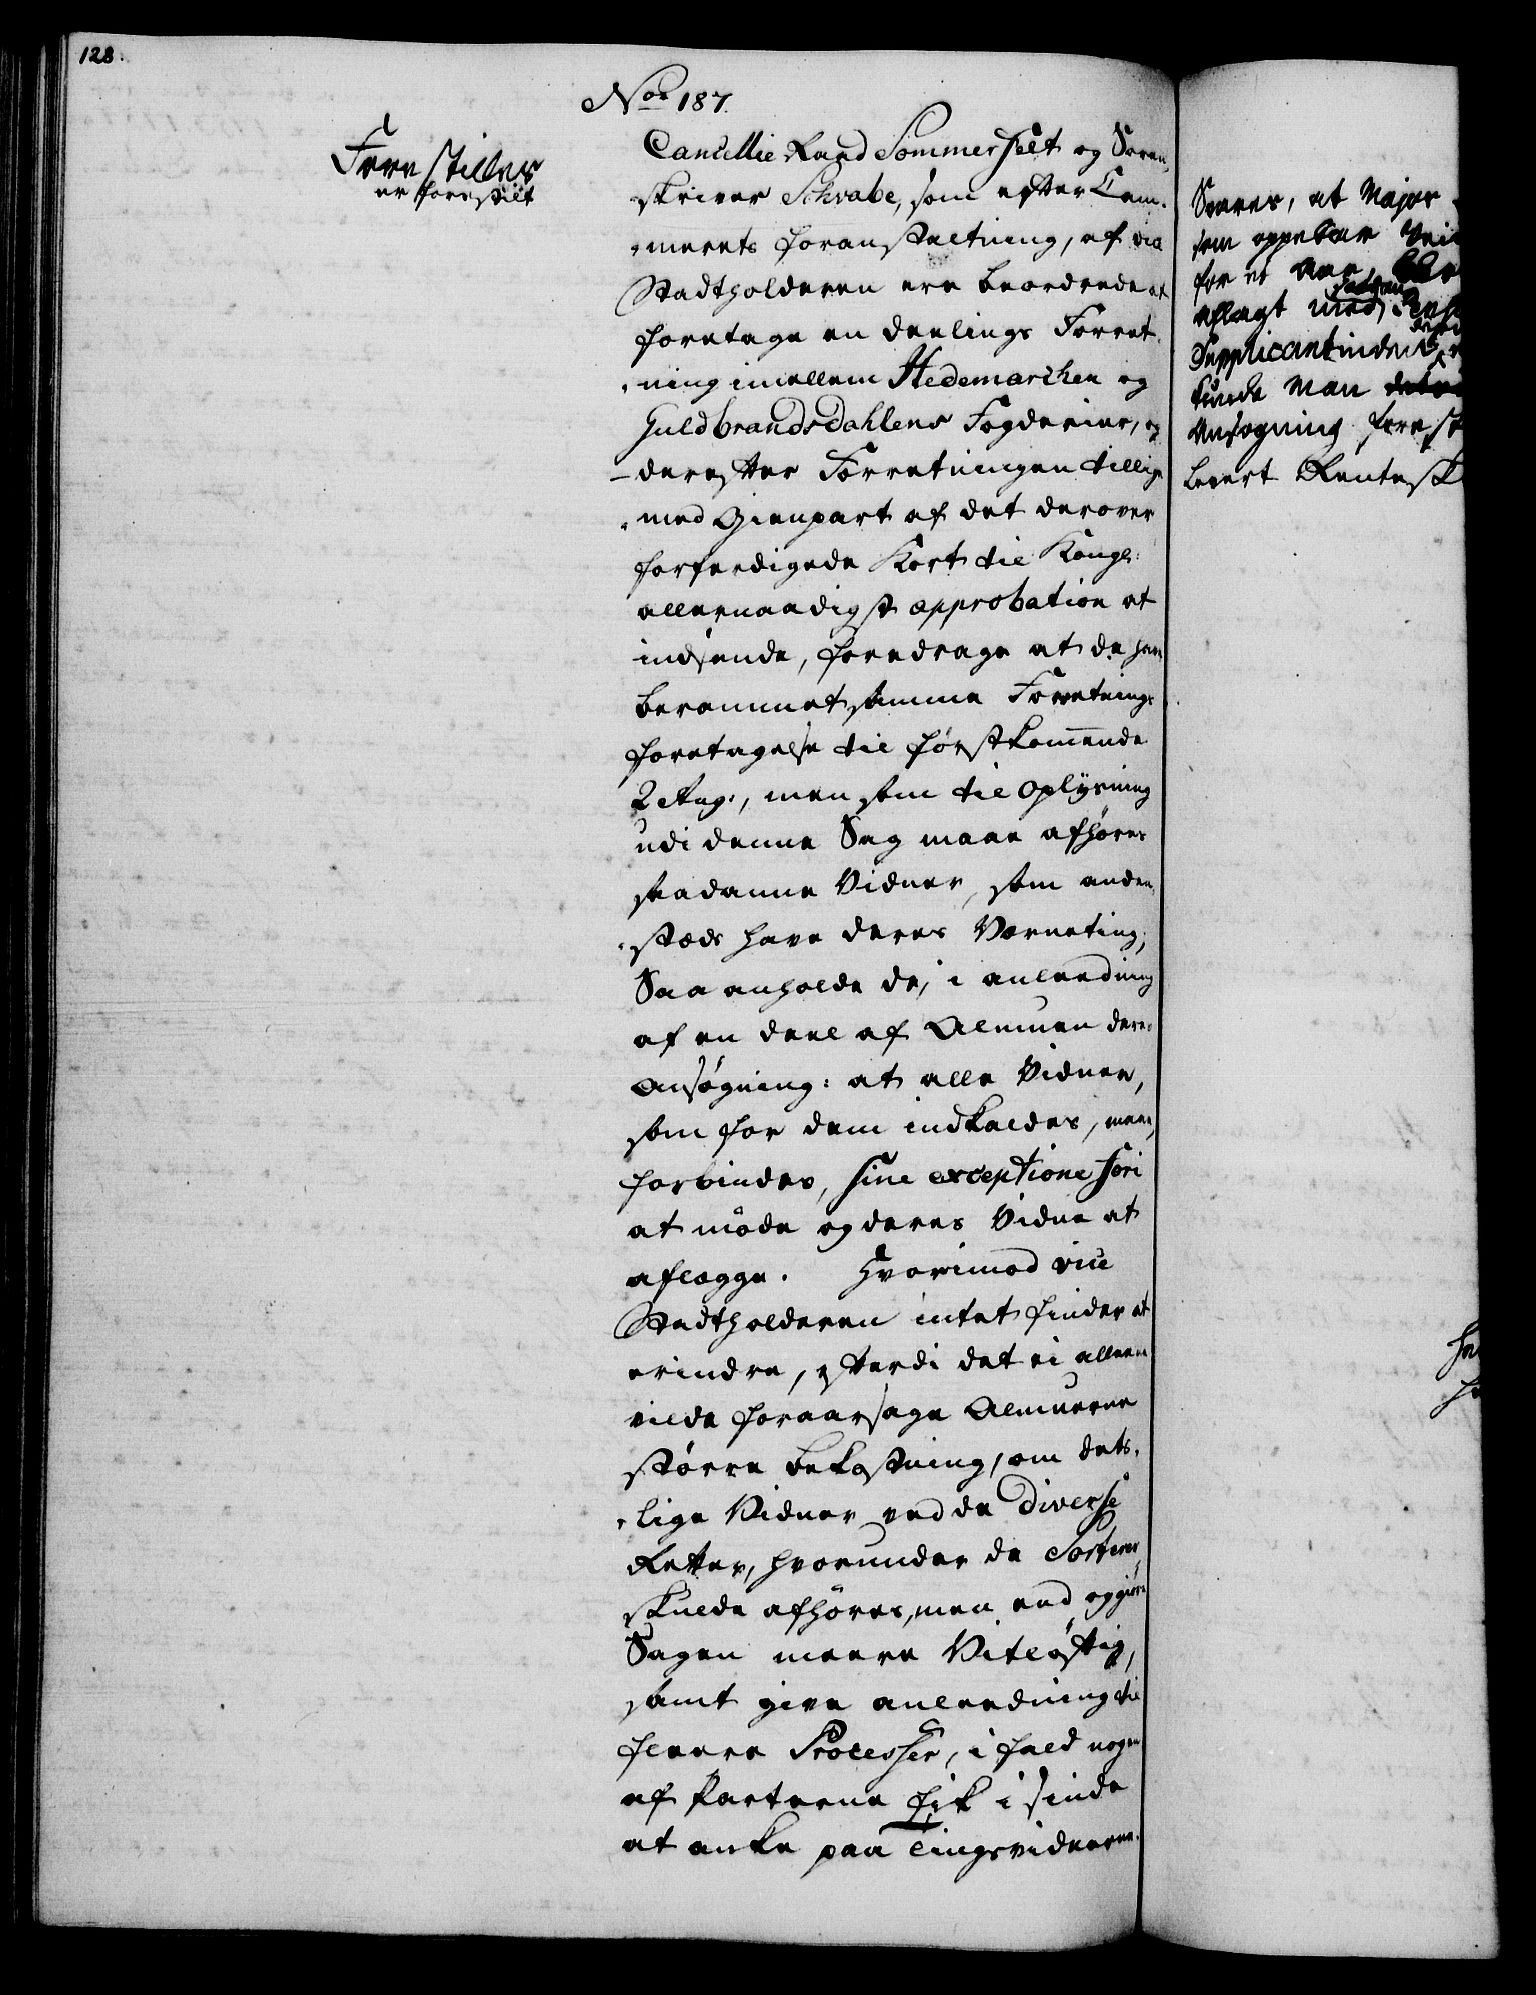 128.
Nor 187.
Forestilles
er forestilt
Cancellie Raad Sommerfelt og Soren
skriver Schwabe, som efter Cam-
merets foranstaltning, af vice
Stadtholderen ere beordrede at
foretage en deelings Forret-
ning imellem Hedemarchen og
Guldbrandsdahlens Fogderier, og
derefter Forretningen tillige
med Gienpart af det derover
forferdigede Kort til Kongl:
allernaadigst approbation at
indsende, foredrage at de have
berammet samme Forretnings
foretagelse til førstkomende
2 Aug:, men som til Oplysning
udi denne Sag maae afhøres
saadanne Vidner, som anden-
stæds have deres Værneting,
Saa anholde de, i anleedning
af en deel af Almuen deres
Ansøgning: at alle Vidner,
som for dem indkaldes, maae
forbindes, sine exceptione fori
at møde og deres Vidne at
aflægge. Hvorimod vice
Stadtholderen intet finder at
erindre, efterdi det ei alleene
vilde foraarsage Almuerne
større bekostning, om dets-
lige Vidner ved de diverse
Retter, hvorunder de Sorterer
skulde afhøres, men end og giøre
Sagen meere Vitløftig,
samt give anleedning til
fleere Processer, i fald nogen
af Parterne fik i sinde
at anke paa Tingsvidnerne.
Svares, at Major
som oppebar
for et Aar,
aflagt med
Supplicantinden
kunde Man
Ansøgning forest
levert Rentesk